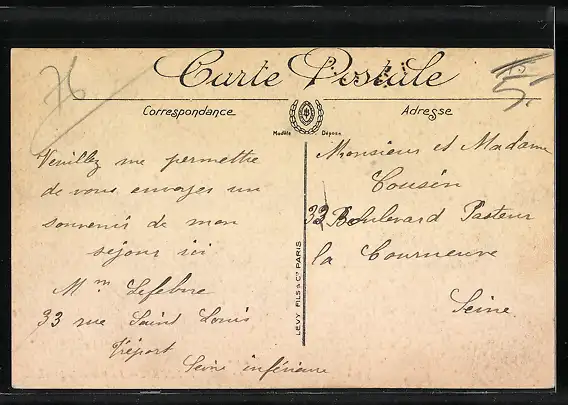 Carte Postale
Correspondance
Adresse
Modèle Déposé
76
Veuillez me permettre
de vous envoyer un
souvenir de mon
séjour ici
Mm Lefebvre
33 rue Saint Louis
Tréport
Seine inférieure
LEVY FILS & Cie PARIS
Monsieur et Madame
Cousin
33 Boulevard Pasteur
la Courneuve
Seine.